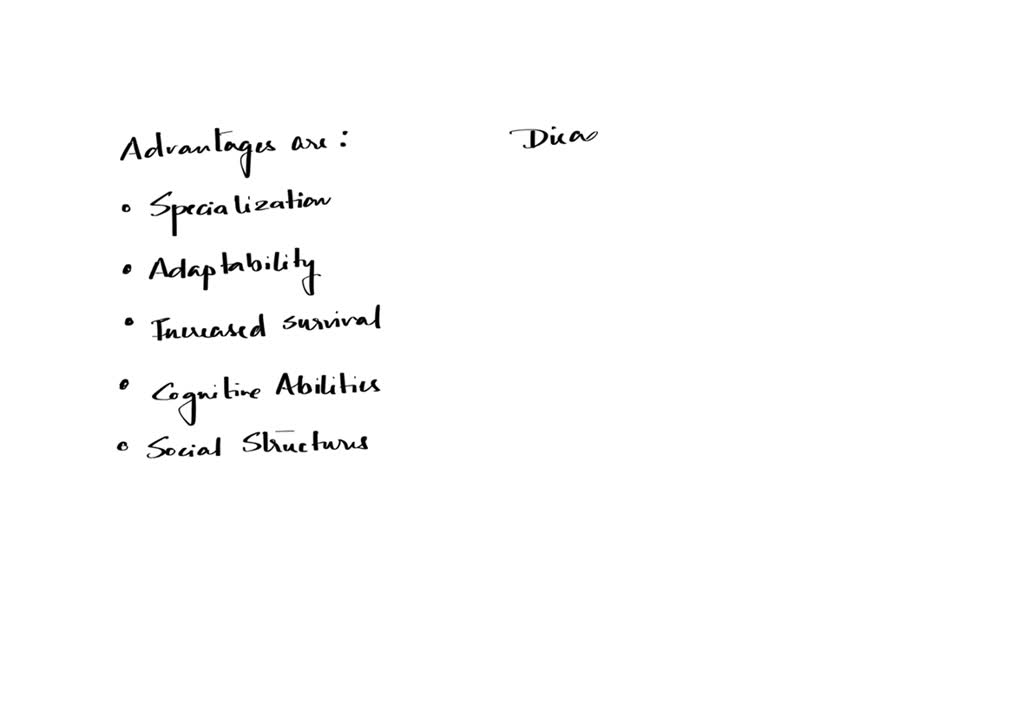 Advantages are:
• Specialization
• Adaptability
• Increased survival
• Cognitive Abilities
• Social Structures